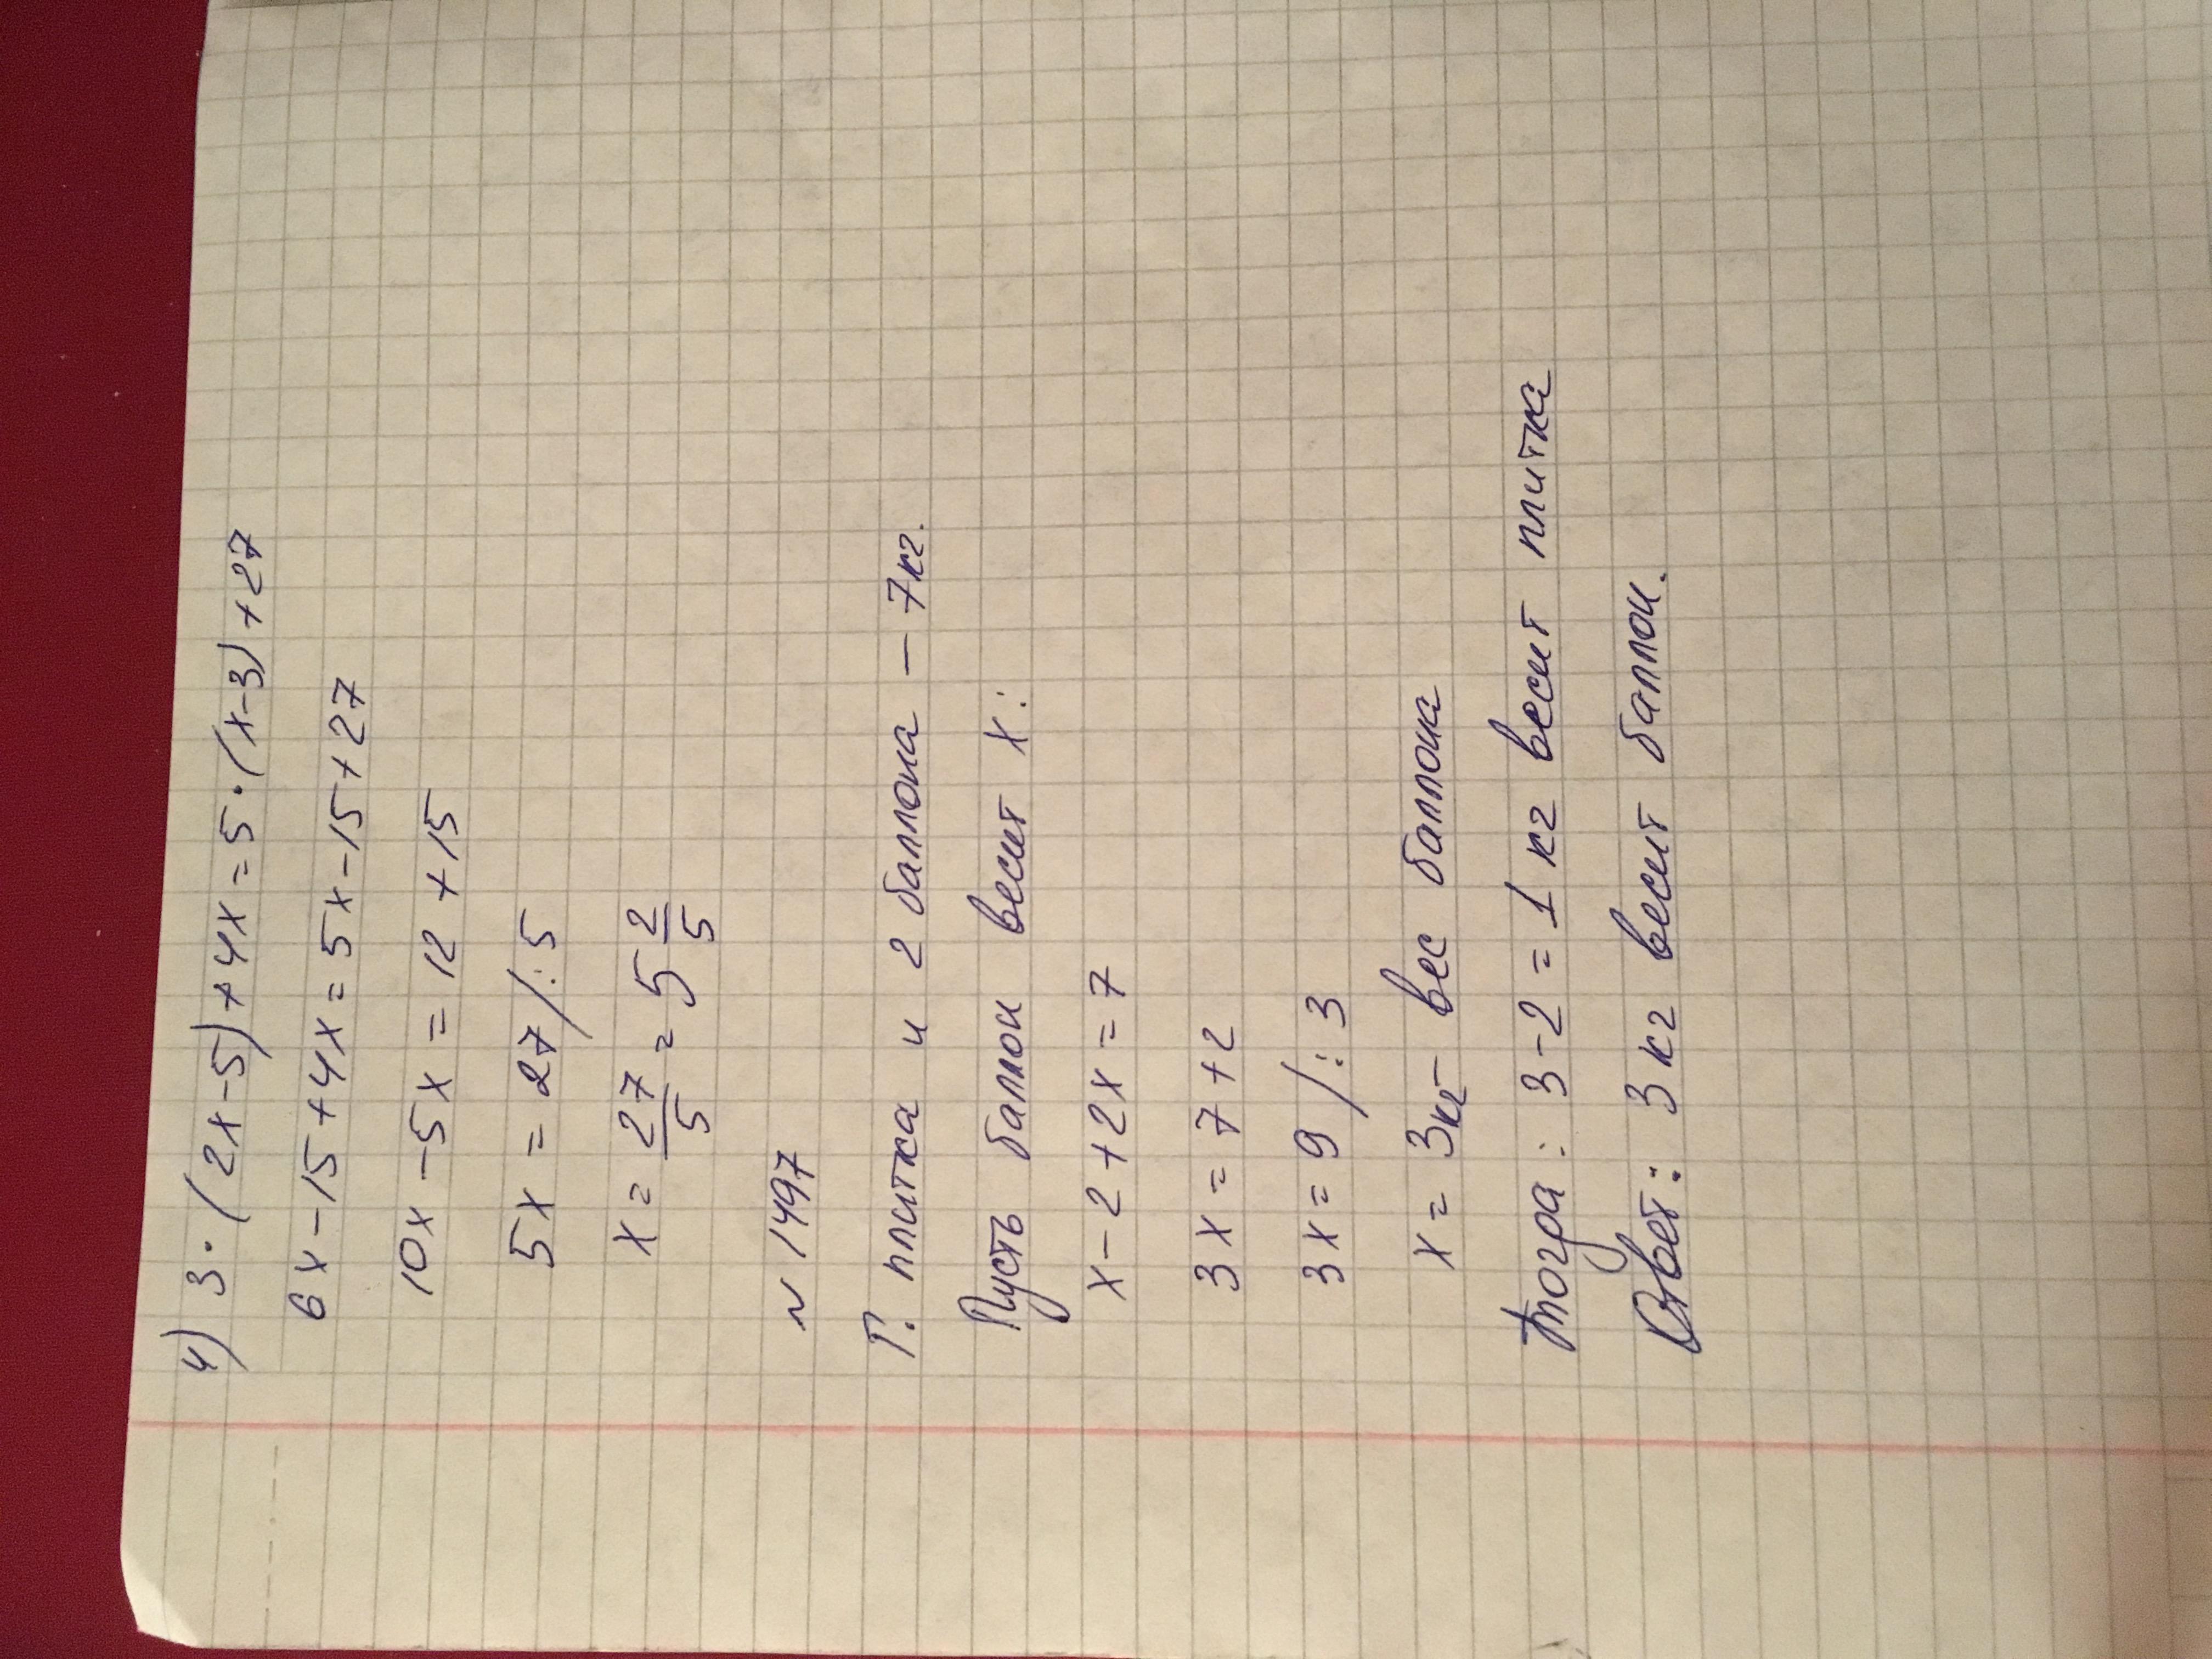 4) 3·(2x-5)+4x=5·(x-3)+27
6x-15+4x=5x-15+27
10x-5x=12+15
5x=27/:5
x=27/5=5 2/5
N 1497
Г. плитка и 2 баллона - 7кг.
Пусть баллон весит x:
x-2+2x=7
3x=7+2
3x=9/:3
x=3кг- вес баллона
Тогда: 3-2=1 кг весит плитка
Ответ: 3 кг весит баллон.